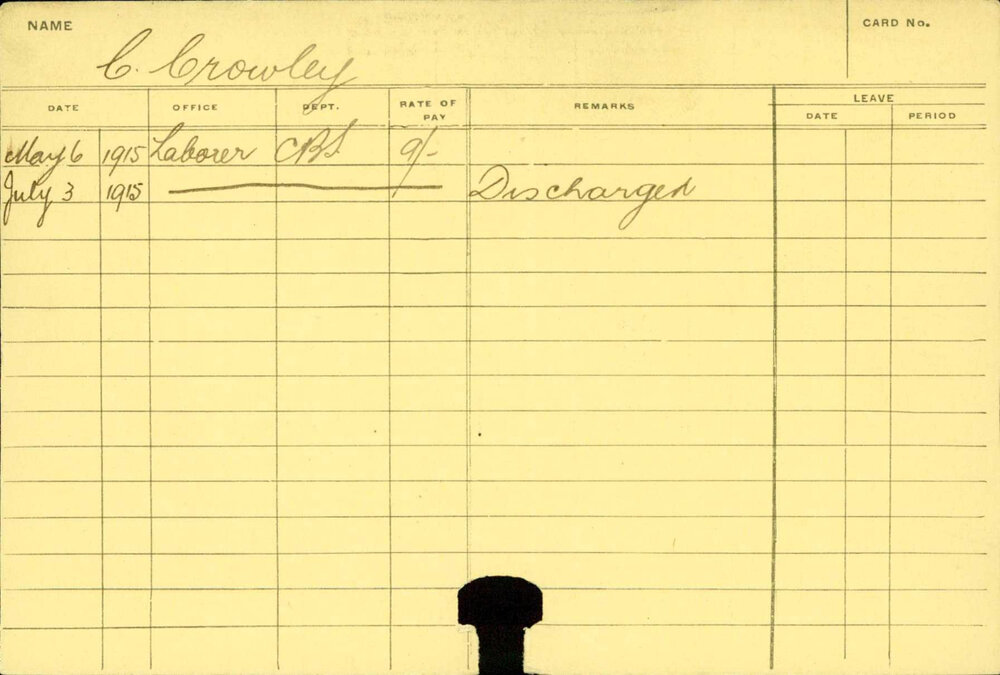 NAME
CARD No.
C. Crowley
DATE OFFICE DEPT. RATE OF PAY REMARKS LEAVE
DATE PERIOD
May 6 1915 Laborer CBS 9/-
July 3 1915 Discharged